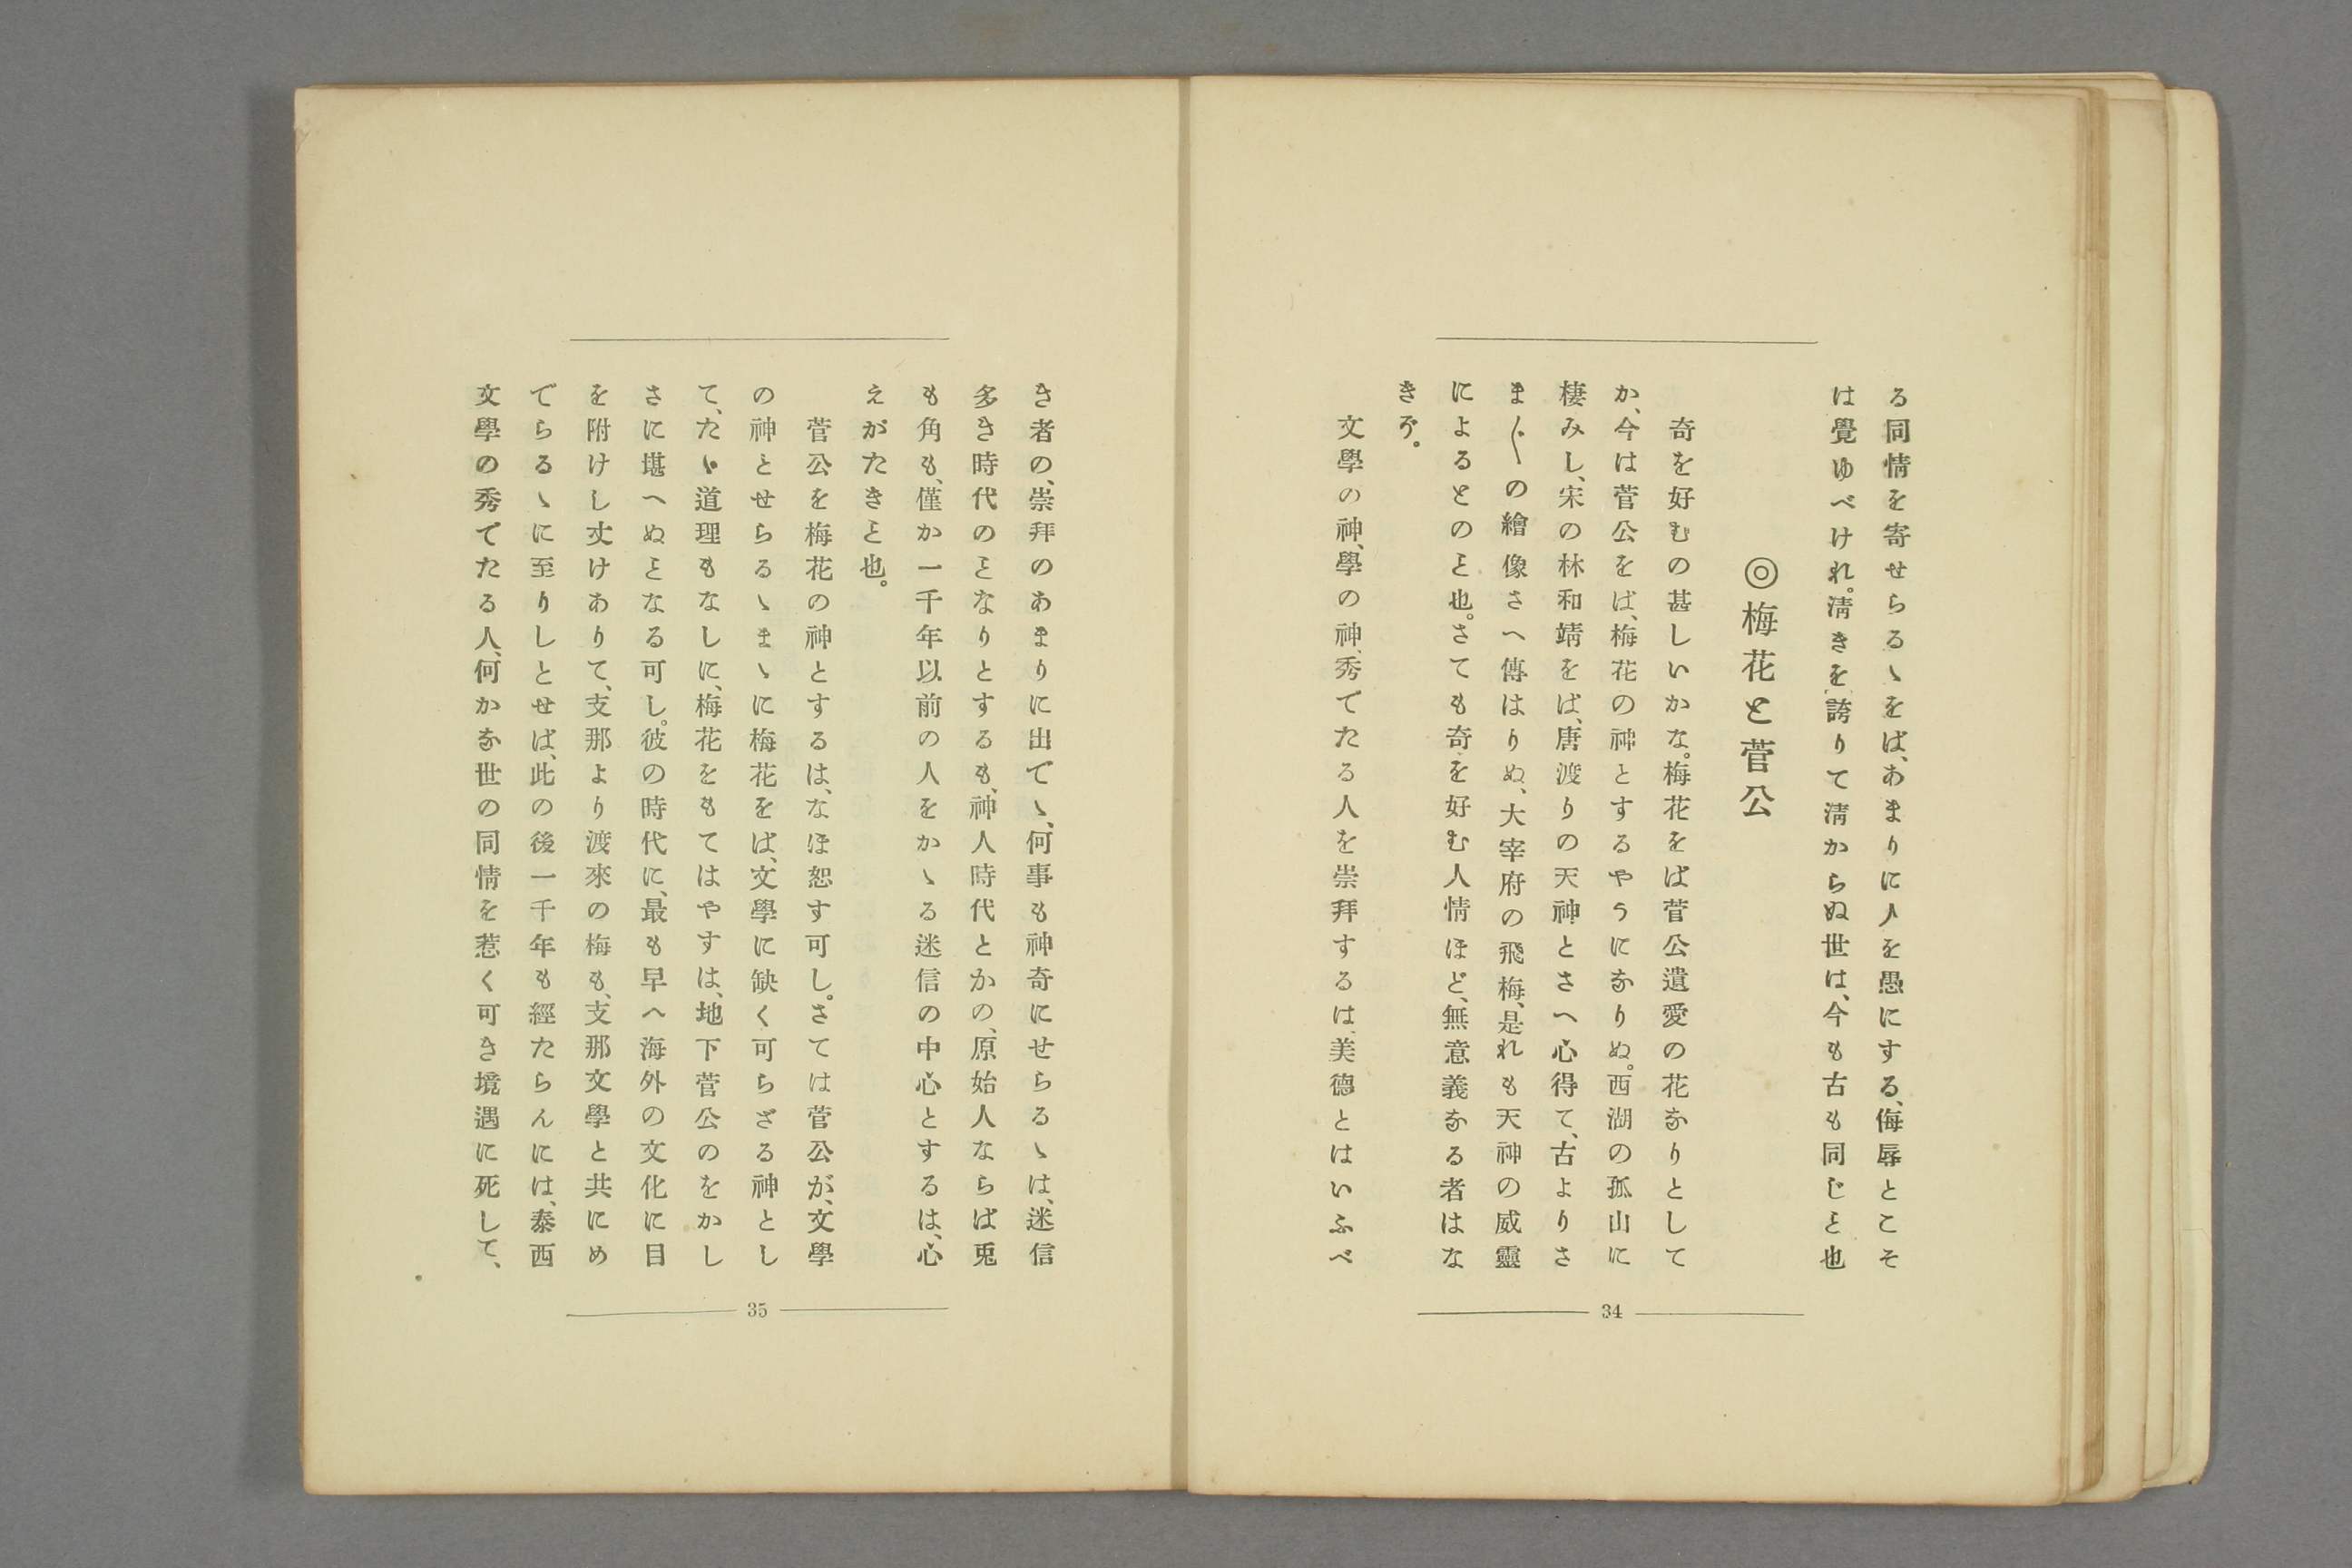 る同情を寄せらるゝをば、あまりに人を愚にする、侮辱とこそ
は覺ゆべけれ。淸きを誇りて淸からぬ世は、今も古も同じこと也
◎梅花と菅公
奇を好むの甚しいかな。梅花をば菅公遺愛の花なりとして
か、今は菅公をば、梅花の神とするやうになりぬ。西湖の孤山に
棲みし、宋の林和靖をば、唐渡りの天神とさへ心得て、古よりさ
ま〴〵の繪像さへ傳はりぬ、大宰府の飛梅、是れも天神の威靈
によるとのこと也。さても奇を好む人情ほど、無意義なる者はな
きぞ。
文學の神、學の神、秀でたる人を崇拜するは、美德とはいふべ
34
き者の、崇拜のあまりに出でゝ、何事も神奇にせらるゝは、迷信
多き時代のことなりとするも、神人時代とかの、原始人ならば兎
も角も、僅か一千年以前の人をかゝる迷信の中心とするは、心
えがたきこと也。
菅公を梅花の神とするは、なほ恕す可し。さては菅公が、文學
の神とせらるゝまゝに梅花をば、文學に缺く可らざる神とし
て、たゞ道理もなしに、梅花をもてはやすは、地下菅公のをかし
さに堪へぬことなる可し。彼の時代に、最も早へ海外の文化に目
を附けし丈けありて、支那より渡來の梅も、支那文學と共にめ
でらるゝに至りしとせば、此の後一千年も經たらんには、泰西
文學の秀でたる人、何かな世の同情を惹く可き境遇に死して、
35